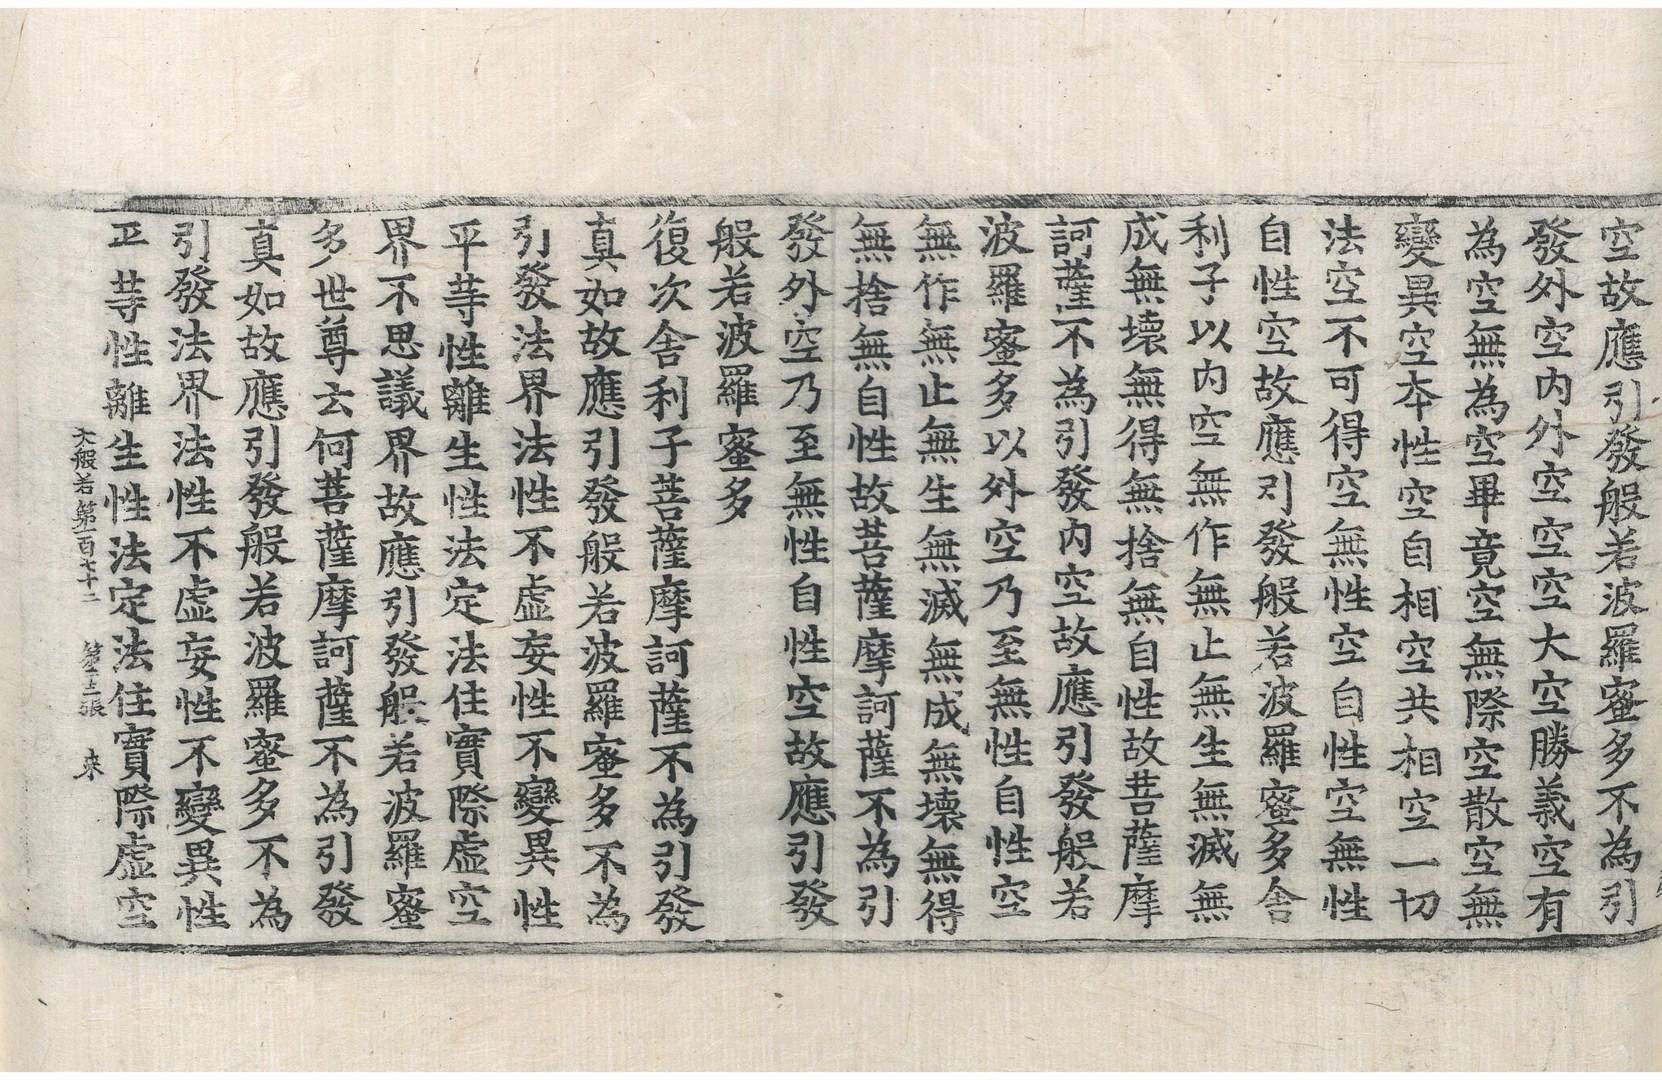 空故應引發般若波羅蜜多不為引
發外空內外空空空大空勝義空有
為空無為空畢竟空無際空散空無
變異空本性空自相空共相空一切
法空不可得空無性空自性空無性
自性空故應引發般若波羅蜜多舍
利子以内空無作無止無生無滅無
成無壞無得無捨無自性故菩薩摩
訶薩不為引發內空故應引發般若
波羅蜜多以外空乃至無性自性空
無作無止無生無滅無成無壞無得
無捨無自性故菩薩摩訶薩不為引
發外空乃至無性自性空故應引發
般若波羅蜜多
復次舍利子菩薩摩訶薩不為引發
真如故應引發般若波羅蜜多不為
引發法界法性不虛妄性不變異性
平等性離生性法定法住實際虛空
界不思議界故應引發般若波羅蜜
多世尊云何菩薩摩訶薩不為引發
真如故應引發般若波羅蜜多不為
引發法界法性不虛妄性不變異性
平等性離生性法定法住實際虛空
大般若第一百七十二 第十三張 來